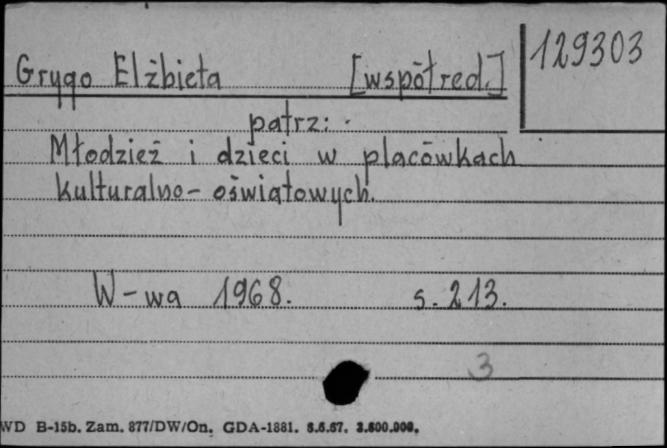 Grygo Elżbieta [współred.] 129303
patrz:
Młodzież i dzieci w placówkach
kulturalno-oświatowych.
W-wa 1968. s. 213.
3
WD B-15b. Zam. 877/DW/On. GDA-1881. 8.6.67. 3.600.000.